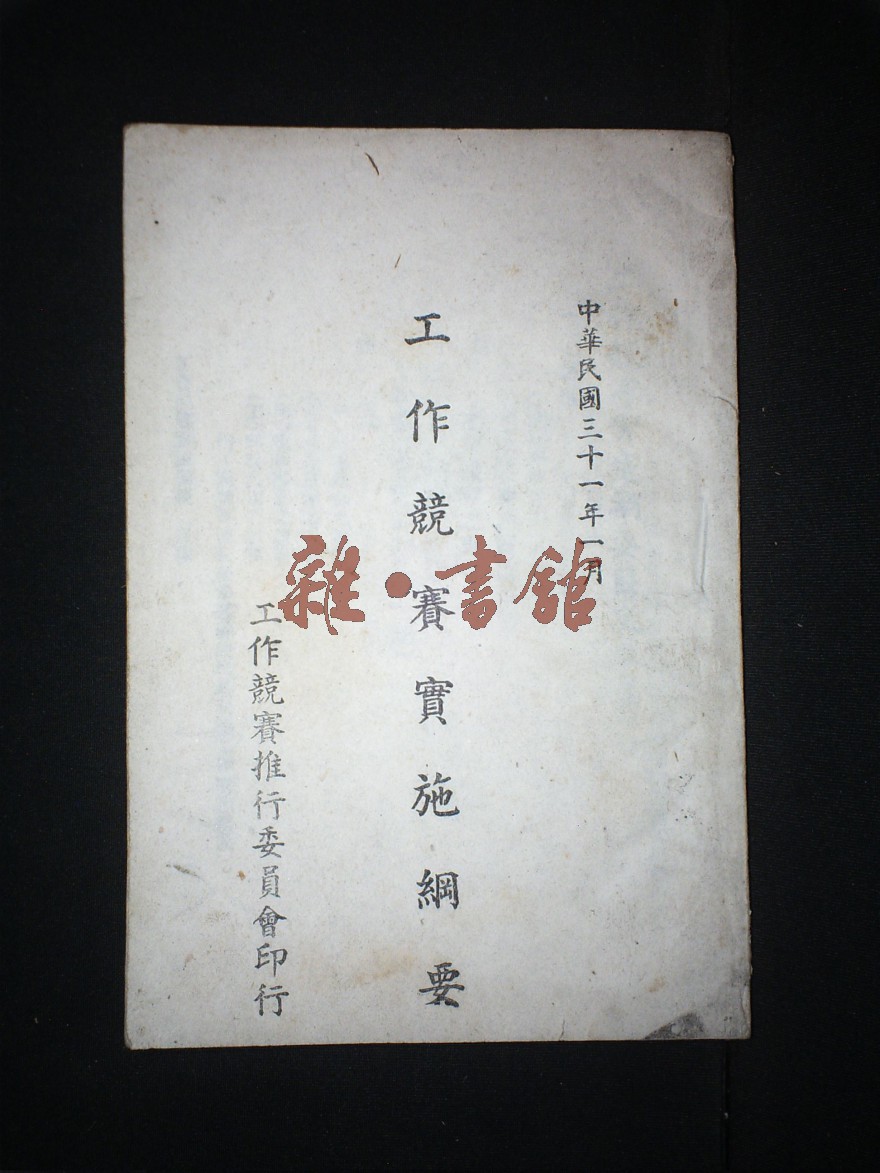 中華民國三十一年一月
工作競賽實施綱要
工作競賽推行委員會印行
雜·書館